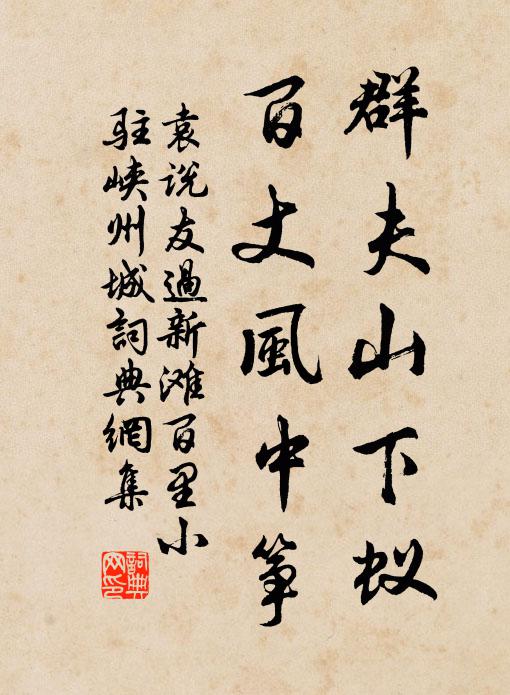 群夫山下蚁
百丈風中筝
袁说友過新滩百里小
驻峡州城詞典網集
詞典网印